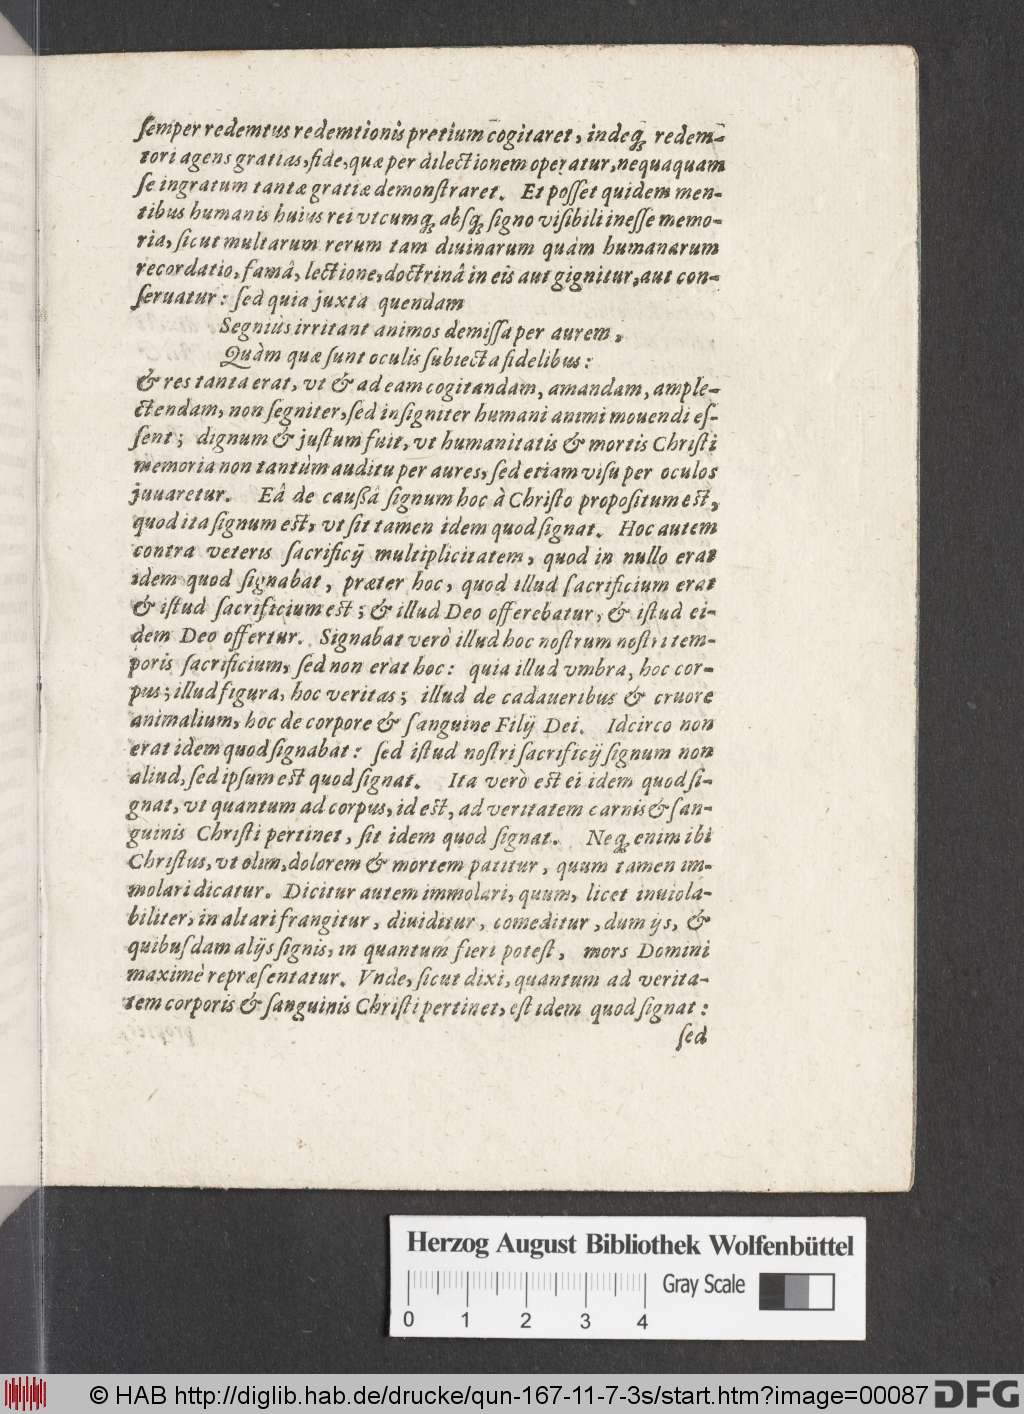 ſemper redemtus redemtionis pretium cogitaret, indeq; redem-
tori agens gratias, fide, quæ per dilectionem operatur, nequaquam
ſe ingratum tantæ gratiæ demonſtraret. Et poſſet quidem men-
tibus humanis huius rei vtcumq; abſq; ſigno viſibili ineſſe memo-
ria, ſicut multarum rerum tam diuinarum quàm humanarum
recordatio, famâ, lectione, doctrinâ in eis aut gignitur, aut con-
ſeruatur: ſed quia juxta quendam
Segniùs irritant animos demiſſa per aurem,
Quàm quæ ſunt oculis ſubiecta fidelibus:
& res tanta erat, vt & ad eam cogitandam, amandam, ample-
ctendam, non ſegniter, ſed inſigniter humani animi mouendi eſ-
ſent; dignum & juſtum fuit, vt humanitatis & mortis Chriſti
memoria non tantùm auditu per aures, ſed etiam viſu per oculos
juuaretur. Eâ de cauſſâ ſignum hoc à Chriſto propoſitum eſt,
quod ita ſignum eſt, vt ſit tamen idem quod ſignat. Hoc autem
contra veteris ſacrificij multiplicitatem, quod in nullo erat
idem quod ſignabat, præter hoc, quod illud ſacrificium erat
& iſtud ſacrificium eſt; & illud Deo offerebatur, & iſtud ei-
dem Deo offertur. Signabat verò illud hoc noſtrum noſtri tem-
poris ſacrificium, ſed non erat hoc: quia illud vmbra, hoc cor-
pus; illud figura, hoc veritas; illud de cadaueribus & cruore
animalium, hoc de corpore & ſanguine Filij Dei. Idcirco non
erat idem quod ſignabat: ſed iſtud noſtri ſacrificij ſignum non
aliud, ſed ipſum eſt quod ſignat. Ita verò eſt ei idem quod ſi-
gnat, vt quantum ad corpus, id eſt, ad veritatem carnis & ſan-
guinis Chriſti pertinet, ſit idem quod ſignat. Neq; enim ibi
Chriſtus, vt olim, dolorem & mortem patitur, quum tamen im-
molari dicatur. Dicitur autem immolari, quum, licet inuiola-
biliter, in altari frangitur, diuiditur, comeditur, dum ijs, &
quibuſdam alijs ſignis, in quantum fieri poteſt, mors Domini
maximè repræſentatur. Vnde, ſicut dixi, quantum ad verita-
tem corporis & ſanguinis Chriſti pertinet, eſt idem quod ſignat:
ſed
Herzog August Bibliothek Wolfenbüttel
Gray Scale
0 1 2 3 4
© HAB http://diglib.hab.de/drucke/qun-167-11-7-3s/start.htm?image=00087
DFG